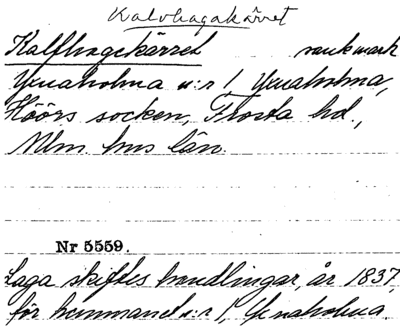 Kalvhagakärret
Kalfhagekärret sankmark
Ynaholma n:r 1 Ynaholma,
Höörs socken, Frosta hd.,
Mlm. hus län.
Nr 5559.
Laga skiftes handlingar, år 1837,
för hemmanet n:r 1, Ynaholma.